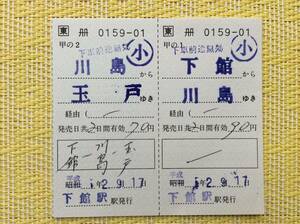 東 冊 0159-01
甲の2
下車前途無効
小
川島 から
玉戸 ゆき
経由(—)
発売日共2日間有効 70円
下館―川島―玉戸
平成
昭和 2.9.17日
下館駅 駅発行
東 冊 0159-01
甲の1
下車前途無効
小
下館 から
川島 ゆき
経由(—)
発売日共2日間有効 90円
平成
昭和 2.9.17日
下館駅 駅発行